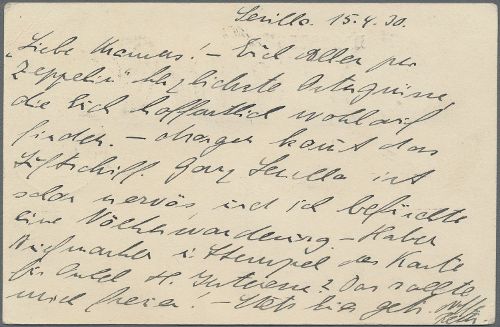 Sevilla. 15.4.30.
„Liebe Mamas! – Euch Allen per
Zeppelin" herzlichste Ostergrüsse,
die Euch hoffentlich wohlauf
finden. – Morgen kommt das
Luftschiff. Ganz Sevilla ist
schon nervös und ich befürchte
eine Völkerwanderung. – Haben
Briefmarken u. Stempel der Karte
für Onkel H. Interesse? Das sollte
mich freuen! – Stets lieb geh.